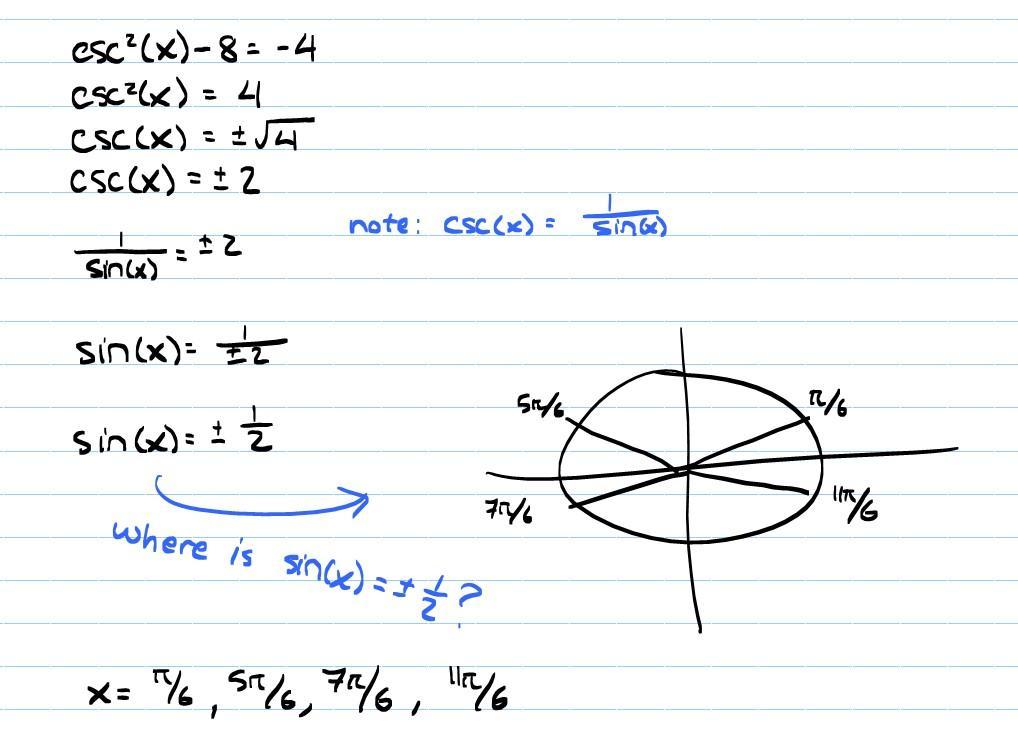 csc²(x) - 8 = -4
csc²(x) = 4
csc(x) = ±√4
csc(x) = ±2
note: csc(x) = 1/sin(x)
1/sin(x) = ±2
sin(x) = 1/±2
sin(x) = ± 1/2
where is sin(x) = ± 1/2 ?
5π/6
π/6
7π/6
11π/6
x = π/6, 5π/6, 7π/6, 11π/6